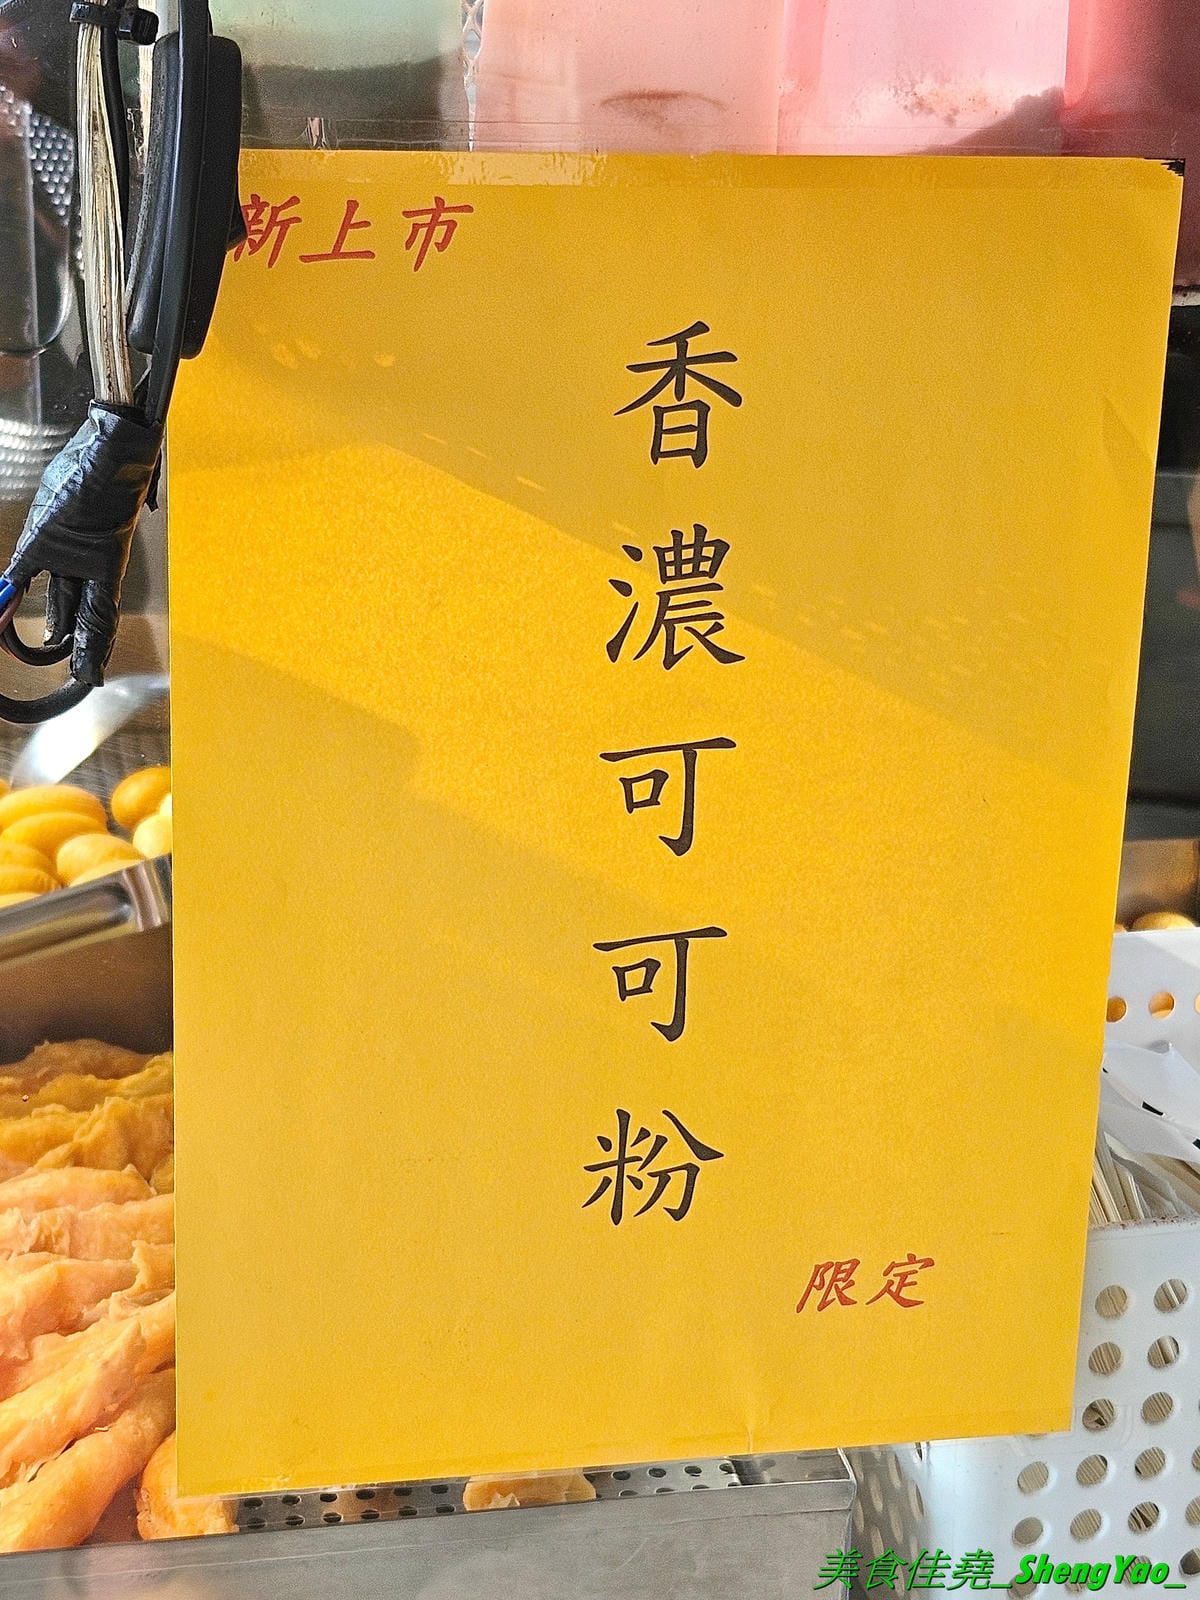 新上市
香濃可可粉
限定
美食佳堯_ShengYao_